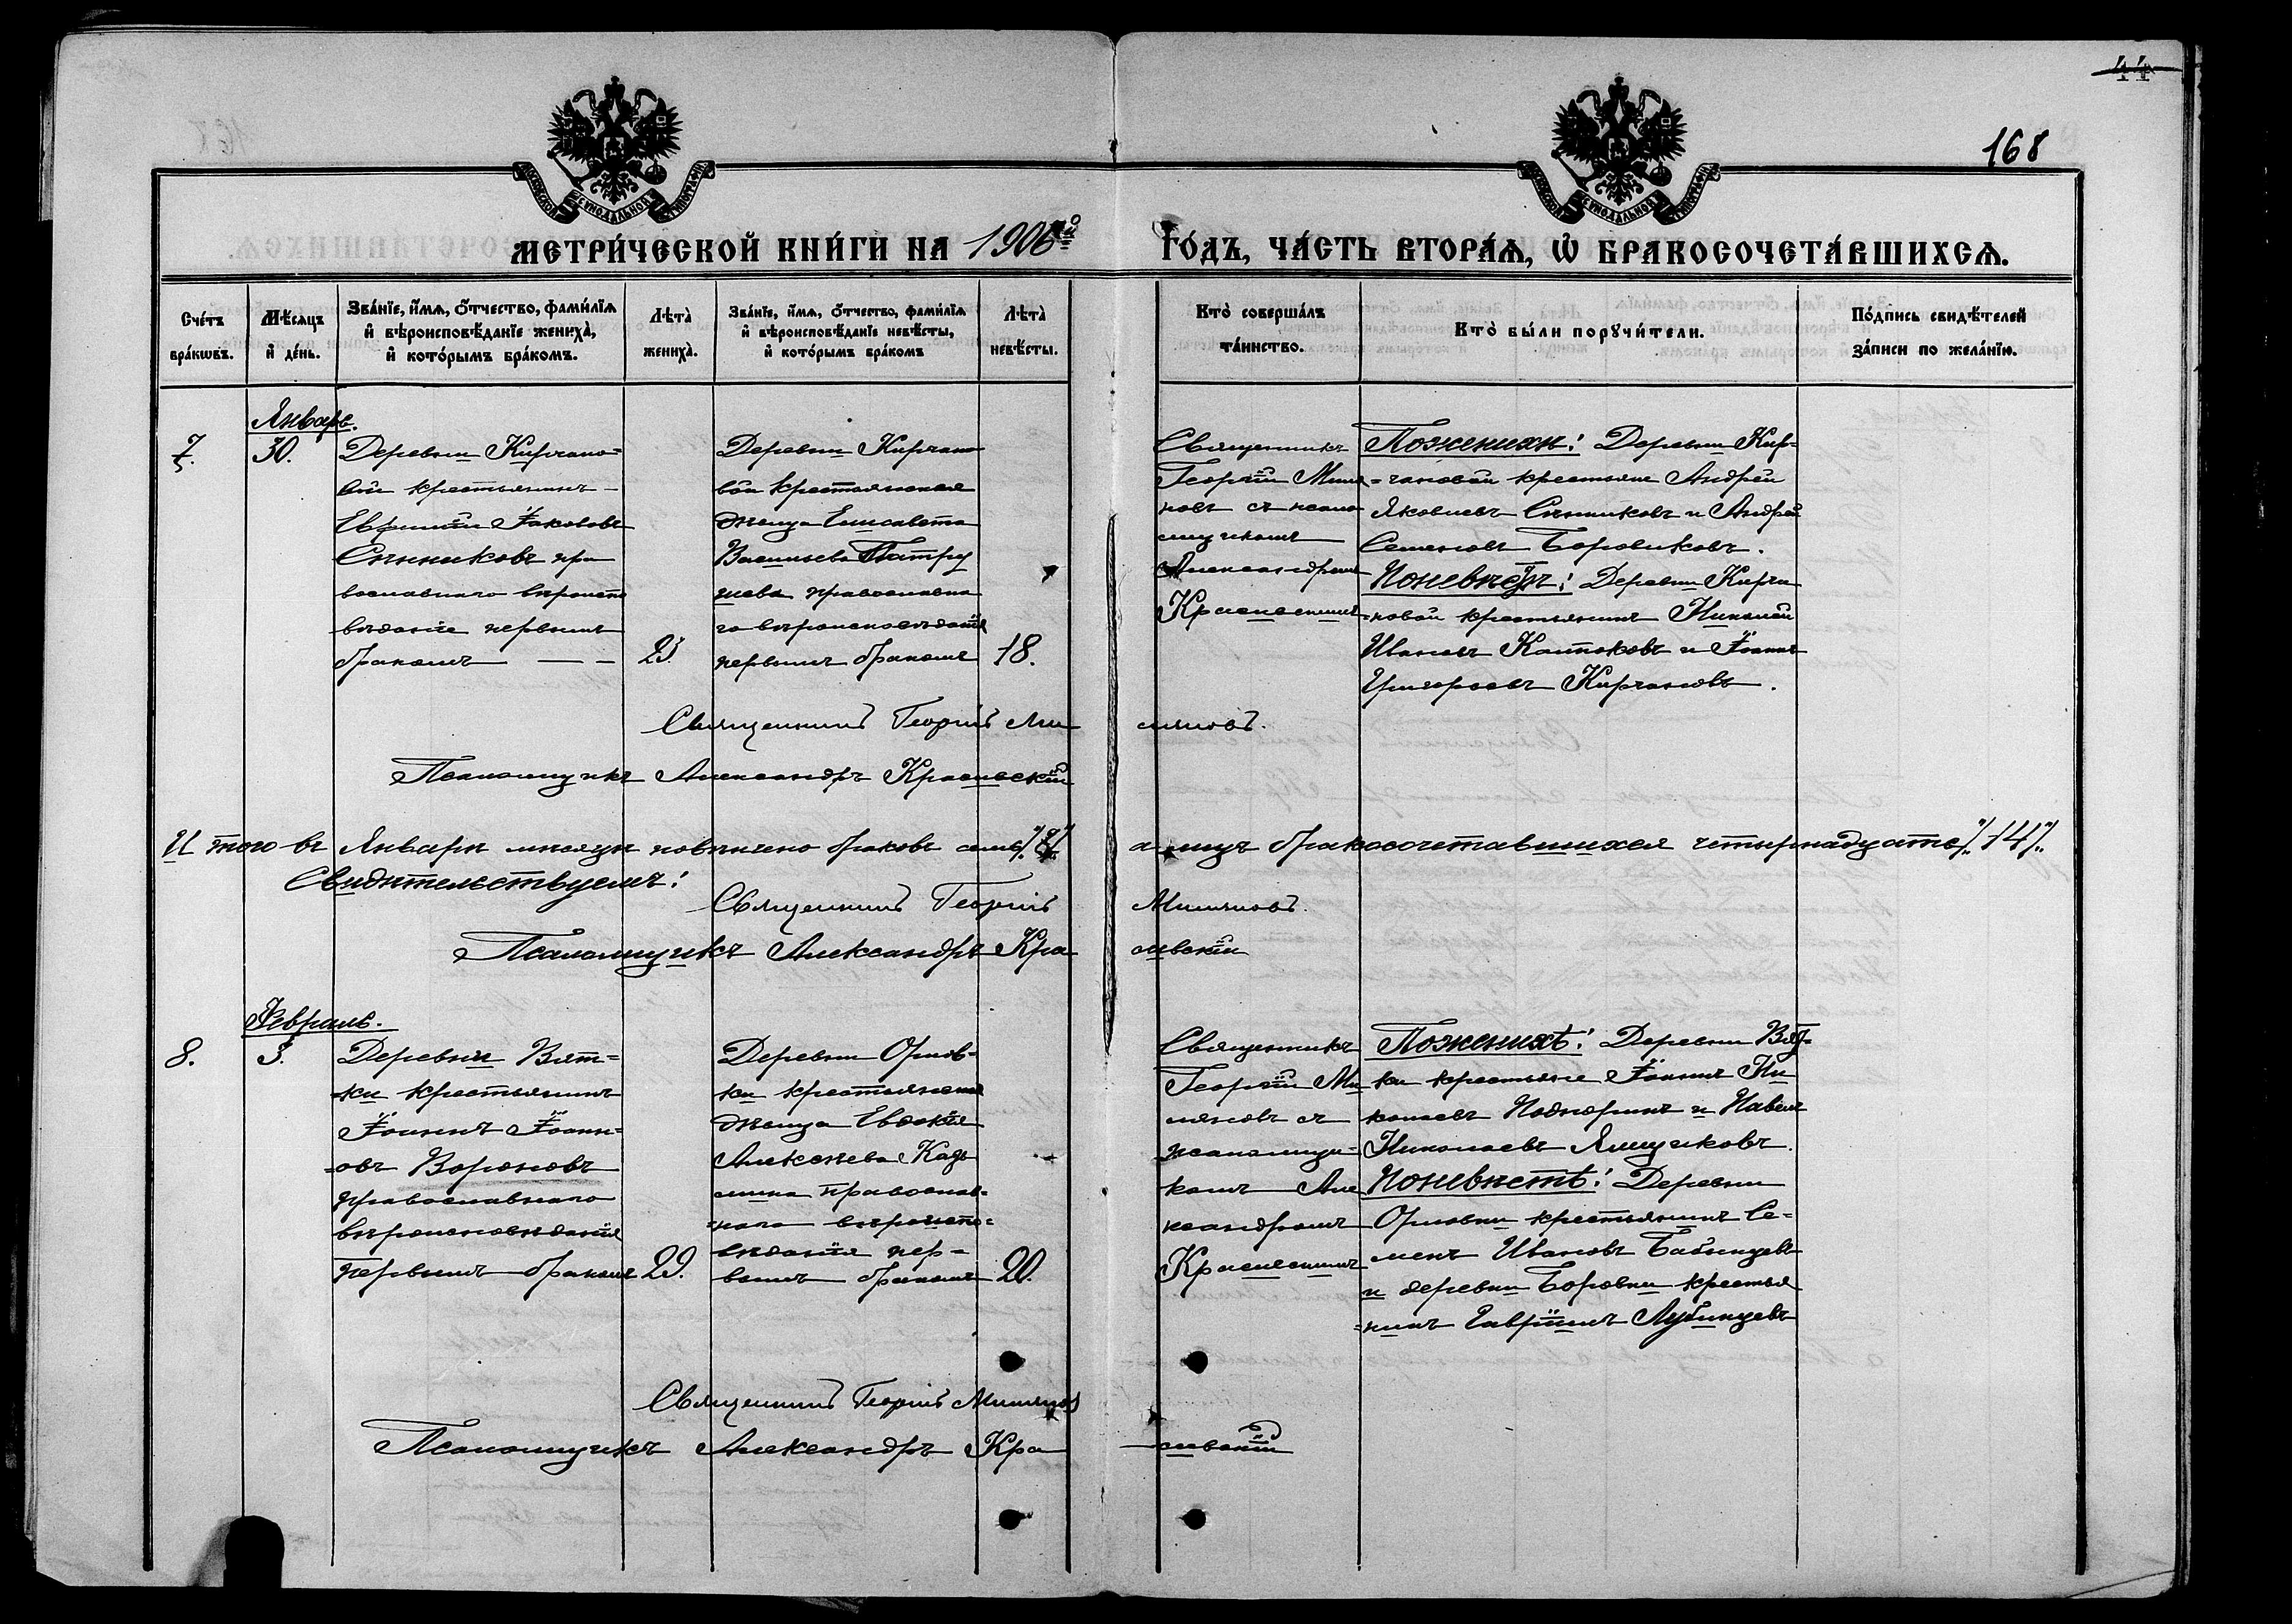 44
168
МЕТРИ́ЧЕСКОЙ КНИ́ГИ НА 1906й ГО́ДЪ, ЧА́СТЬ ВТОРА́Я, Ѽ БРАКОСОЧЕТА́ВШИХСЯ.
Сче́тъ бра́кѡвъ.
Мѣ́сяцъ и́ де́нь.
Зва́нїе, и́мя, ѻ́тчество, фами́лїя и́ вѣроисповѣ́данїе жениха̀, и́ кото́рымъ бра́комъ.
Лѣта̀ жениха̀.
Зва́нїе, и́мя, ѻ́тчество, фами́лїя и́ вѣроисповѣ́данїе невѣ́сты, и́ кото́рымъ бра́комъ
Лѣта̀ невѣ́сты.
Кто̀ соверша́лъ та́инство.
Кто̀ бы́ли порꙋчи́тели.
По́дпись свидѣ́телей за́писи по жела́нїю.
Январь.
7.
30.
Деревни Кирчано=
вой крестьянинъ
Евфимій Іакововъ
Сѣнниковъ пра
вославнаго вѣроиспо
вѣданіе первымъ
бракомъ
23.
Деревни Кирчано
вой крестьянская
дѣвица Елисавета
Васильева
православна
го вѣроисповѣданія
первымъ бракомъ
18.
Священникъ
Георгій Миля
новъ съ псало
мщикомъ
Александромъ
Красивскимъ
Поженихѣ: Деревни Кир=
=чановой крестьяне Андрей
Яковлевъ Сѣнниковъ и Андрей
Семеновъ Боровиковъ.
Поневѣстѣ: Деревни Кирча
=новой крестьянинъ Николай
Ивановъ Катковъ и Іоаннъ
Григорьевъ Кирчановъ.
Священникъ Георгій Ми
ляновъ.
Псаломщикъ Александръ Красивскій
И того въ Январѣ мѣсяцѣ повѣнчено браковъ семь /.7./ а лицъ бракосочетавшихся четырнадцать /.14./.
Свидѣтельствуемъ:
Священникъ Георгій Миляновъ.
Псаломщикъ Александръ Кра
сивскій
Февраль.
8.
5.
Деревни Вят=
=ки крестьянинъ
Іоаннъ Іоанн=
=овъ Вороновъ
православнаго
вѣроисповѣданія
первымъ бракомъ
29.
Деревни Орлов=
ки крестьянская
дѣвица Евдокія
Алексѣева
православ=
=наго вѣроиспо=
вѣданія пер=
вымъ бракомъ
20.
Священникъ
Георгій Ми
ляновъ съ
псаломщи=
комъ Але
ксандромъ
Красивскимъ
Поженихѣ: Деревни Вят=
ки крестьяне Іоаннъ Ни
колаевъ и Павелъ
Николаевъ Ямщиковъ.
Поневѣстѣ: Деревни
Орловки крестьянинъ Се=
менъ Ивановъ
и деревни Боровки крестья
=нинъ Гавріилъ Лубянцевъ
Священникъ Георгій Миляновъ
Псаломщикъ Александръ Кра
сивскій